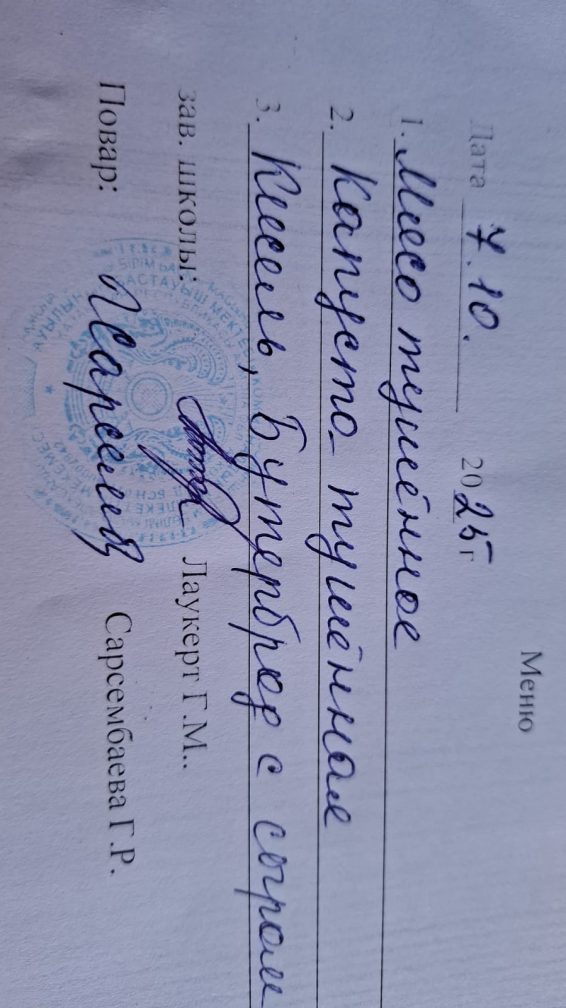 Меню
Дата 7.10. 2025 г
1. Мясо тушённое
2. Капуста тушённая
3. Кисель, Бутерброд с сыром
зав. школы: Лаукерт Г.М..
Повар: Сарсембаева Г.Р.